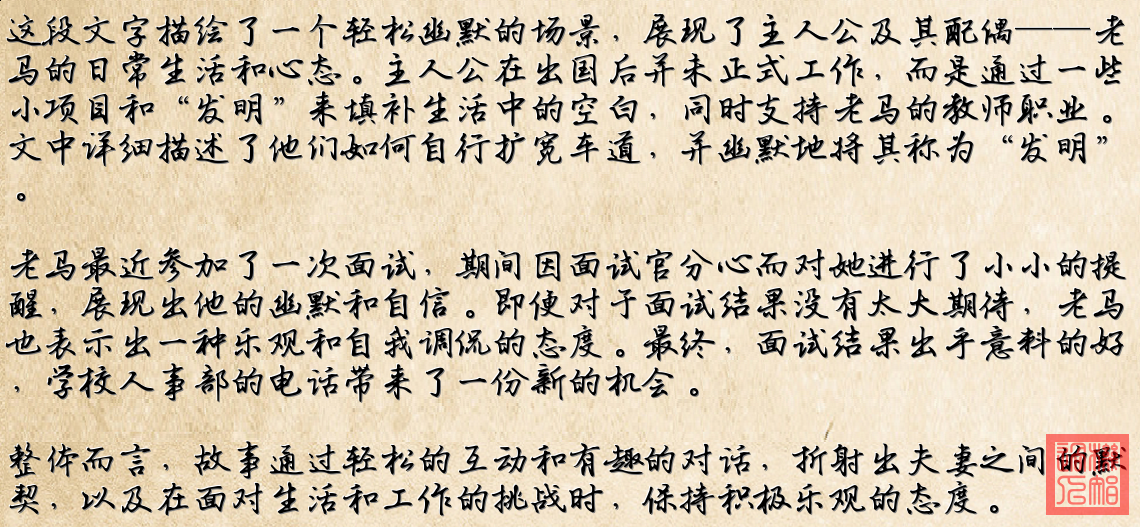 这段文字描绘了一个轻松幽默的场景，展现了主人公及其配偶——老
马的日常生活和心态。主人公在出国后并未正式工作，而是通过一些
小项目和“发明”来填补生活中的空白，同时支持老马的教师职业。
文中详细描述了他们如何自行扩宽车道，并幽默地将其称为“发明”
。
老马最近参加了一次面试，期间因面试官分心而对她进行了小小的提
醒，展现出他的幽默和自信。即便对于面试结果没有太大期待，老马
也表示出一种乐观和自我调侃的态度。最终，面试结果出乎意料的好
，学校人事部的电话带来了一份新的机会。
整体而言，故事通过轻松的互动和有趣的对话，折射出夫妻之间的默
契，以及在面对生活和工作的挑战时，保持积极乐观的态度。